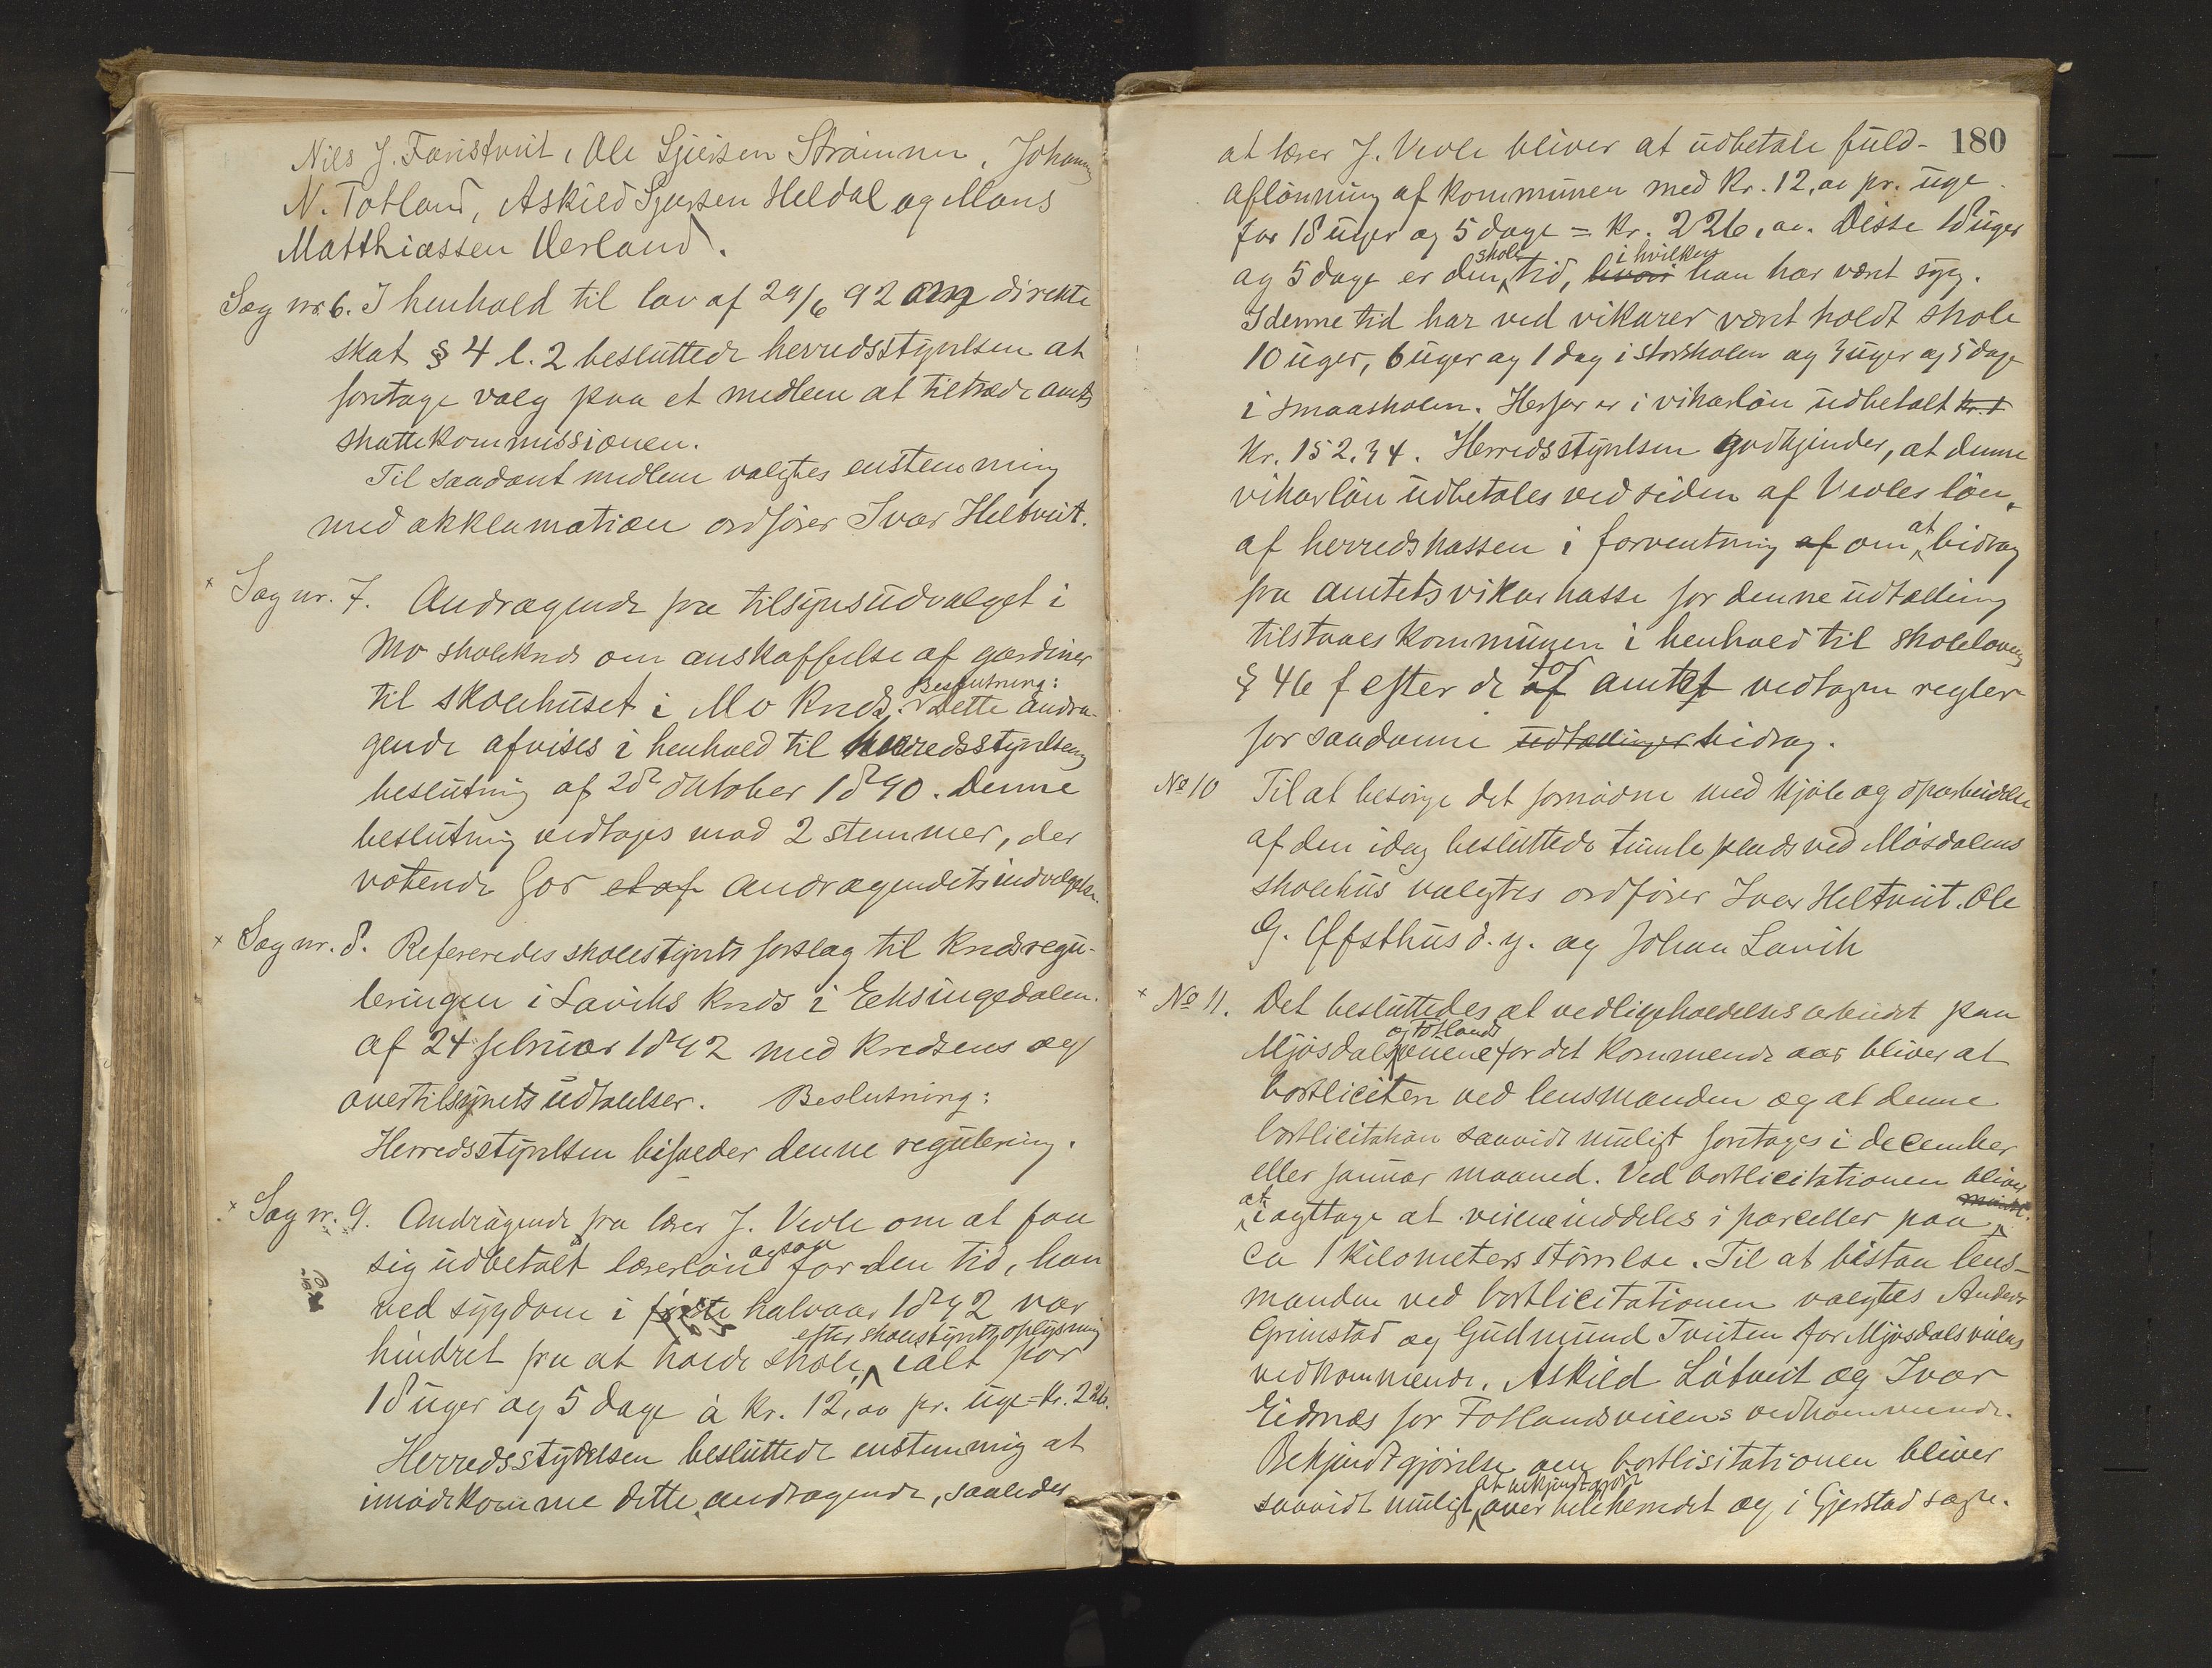 Nils J. Fanistveit, Ole Sjursen Strømmen, Johannes
N. Totland, Askild Sjursen Heldal og Mons
Matthiassen Verland.
Sag nr. 6. I henhold til lov af 29/6 92 om direkte
skat § 4 l. 2 besluttede herredsstyrelsen at
foretage valg paa et medlem at tiltræde amts
skattekommissionen.
Til saadant medlem valgtes enstemmig
med akklamation ordfører Ivar Heltveit.
× Sag nr. 7. Andragende fra tilsynsudvalget i
Mo skolekreds om anskaffelse af gardiner
til skolehuset i Mo kreds. Beslutning: Dette andra-
gende afvises i henhold til herredsstyrelsens
beslutning af 28 oktober 1890. Denne
beslutning vedtoges mod 2 stemmer, der
votende for et af andragendets indvilgelse.
× Sag nr. 8. Refereredes skolestyrets forslag til kredsregu-
leringen i Laviks kreds i Eksingedalen.
af 24 februar 1892 med kredsens og
overtilsynets udtalelser. Beslutning:
Herredsstyrelsen bifalder denne regulering.
× Sag nr. 9. Andragende fra lærer J. Veole om at faa
sig udbetalt lærerløn ogsaa for den tid, han
ved sygdom i første halvaar 1892 var
hindret fra at holde skole, efter skolestyrets oplysning ialt for
18 uger og 5 dage à kr. 12,00 pr. uge = kr. 226.
Herredsstyrelsen besluttede enstemmig at
imødekomme dette andragende, saaledes
180
at lærer J. Veole bliver at udbetale fuld-
aflønning af kommunen med kr. 12,00 pr. uge
for 18 uger og 5 dage = kr. 226,00. Disse 18 uger
og 5 dage er den skoletid, hvori i hvilken han har været syg.
I denne tid har ved vikarer været holdt skole
10 uger, 6 uger og 1 dag i storskolen og 3 uger og 5 dage
i smaaskolen. Herfor er i vikarløn udbetalt kr. 1
kr. 152.34. Herredsstyrelsen godkjender, at denne
vikarløn udbetales ved siden af Veoles løn,
af herredskassen i forventning af om at bidrag
fra amtets vikarkasse for denne udtælling
tilstaaes kommunen i henhold til skolelovens
§ 46 f efter de af for amtet vedtagne regler
for saadanne udtællinger bidrag.
No 10 Til at besørge det fornødne med kjøb og oparbeidelse
af den idag besluttede tumleplads ved Mösdalens
skolehus valgtes ordfører Ivar Heltveit. Ole
G. Øffsthus d. y. og Johan Lavik
× No 11. Det besluttedes at vedligeholdelsesarbeidet paa
Mjøsdals og Totlands veiene for det kommende aar bliver at
bortlicitere ved lensmanden og at denne
bortlicitation saavidt muligt foretages i december
eller januar maaned. Ved bortlicitationen bliver
at iagttage at veiene inddeles i parceller paa
ca 1 kilometers størrelse. Til at bistaa lens-
manden ved bortlicitationen valgtes Anders
Grimstad og Gudmund Tveiten for Mjøsdalsveiens
vedkommende. Askild Låtveit og Ivar
Eidsnæs for Totlandsveiens vedkommende.
Bekjendtgjørelse om bortlisitationen bliver
saavidt muligt at bekjendtgjøre over hele herredet og i Gjerstad sogn.